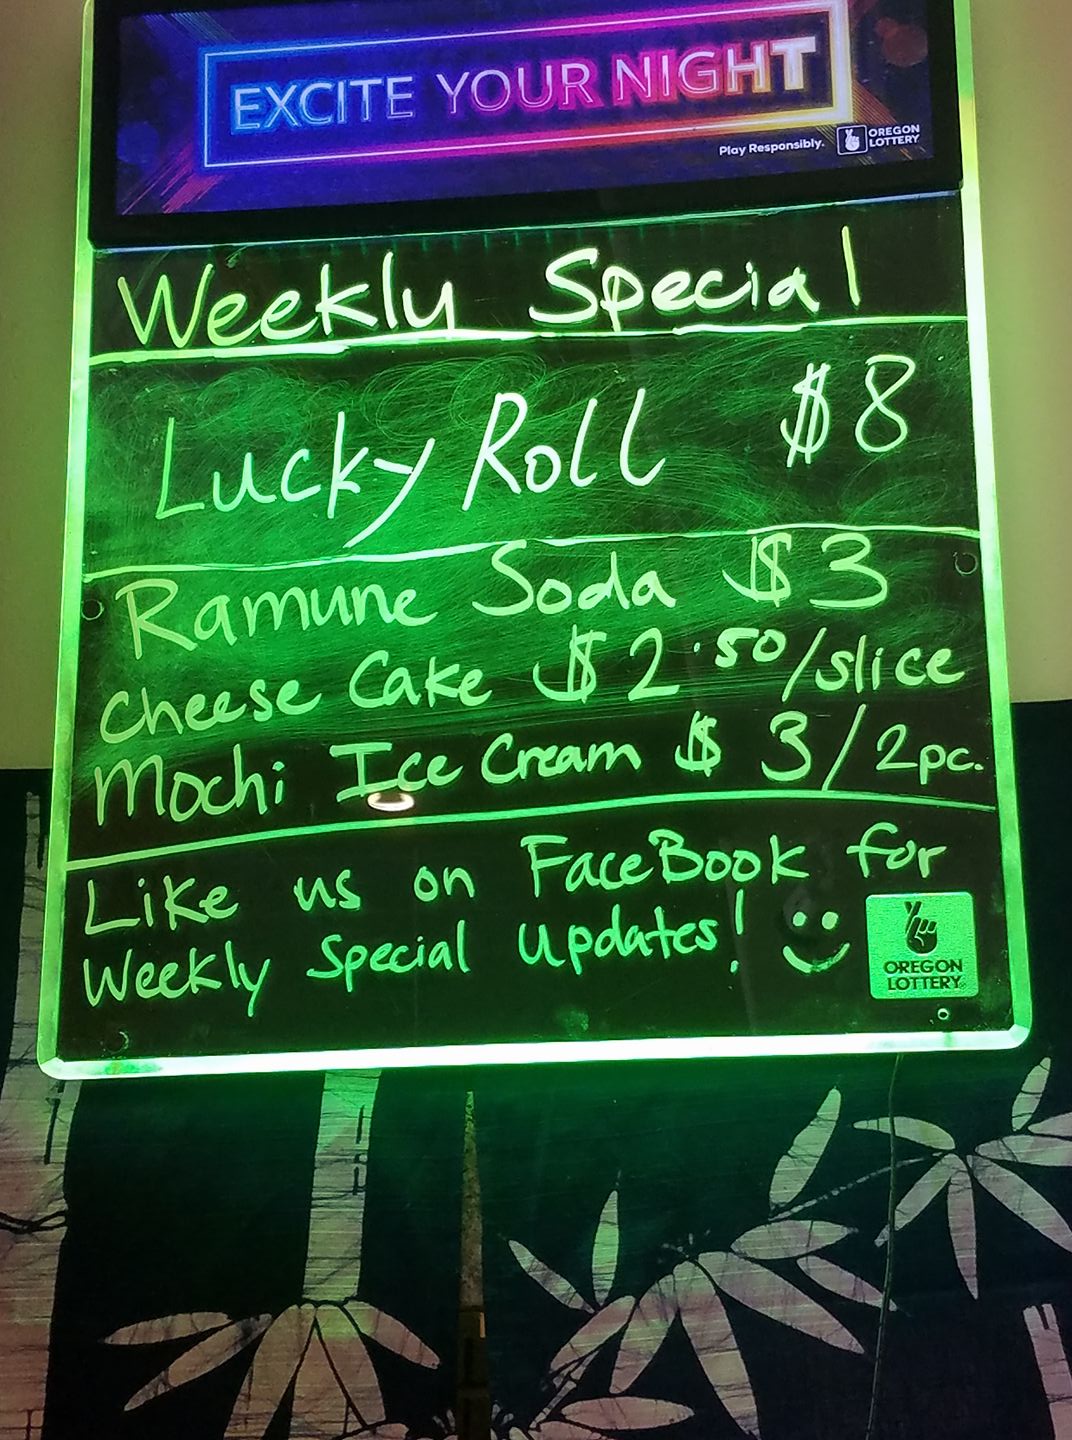 EXCITE YOUR NIGHT
Play Responsibly.
OREGON
LOTTERY
Weekly Special
Lucky Roll $8
Ramune Soda $3
Cheese Cake $2.50/slice
Mochi Ice Cream $3/2pc.
Like us on FaceBook for
Weekly Special updates!
OREGON
LOTTERY